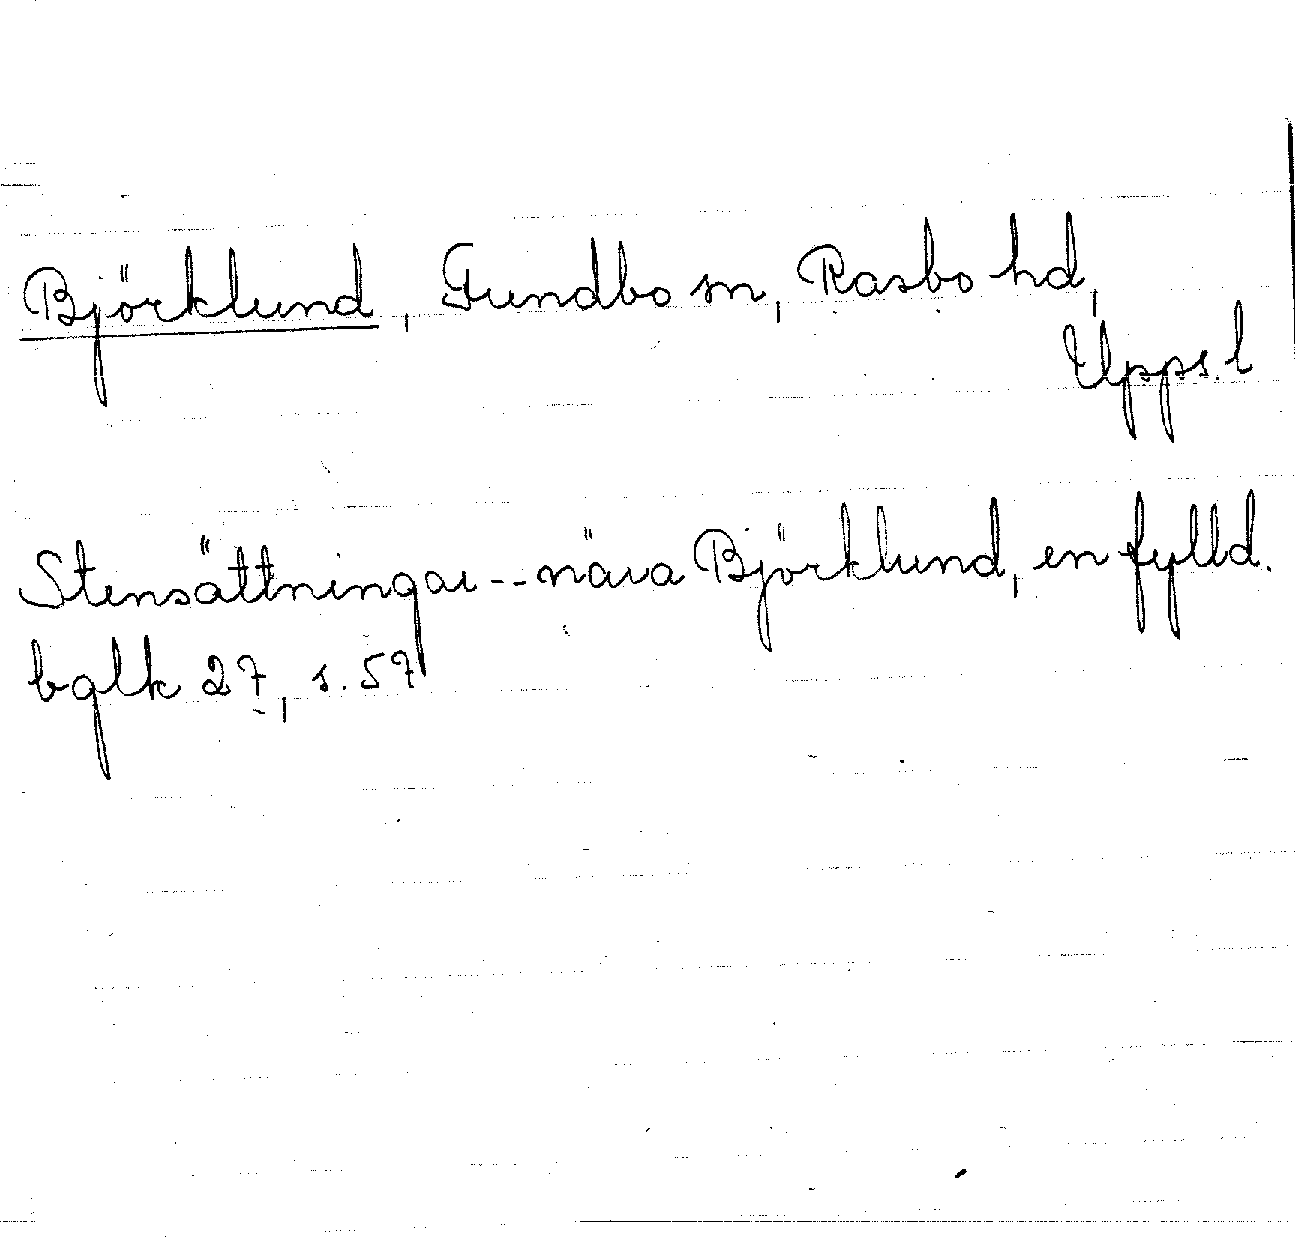 Björklund, Funbo sn, Rasbo hd,
Upps. l
Stensättningar -- nära Björklund, en fylld.
bglk 27, s. 57